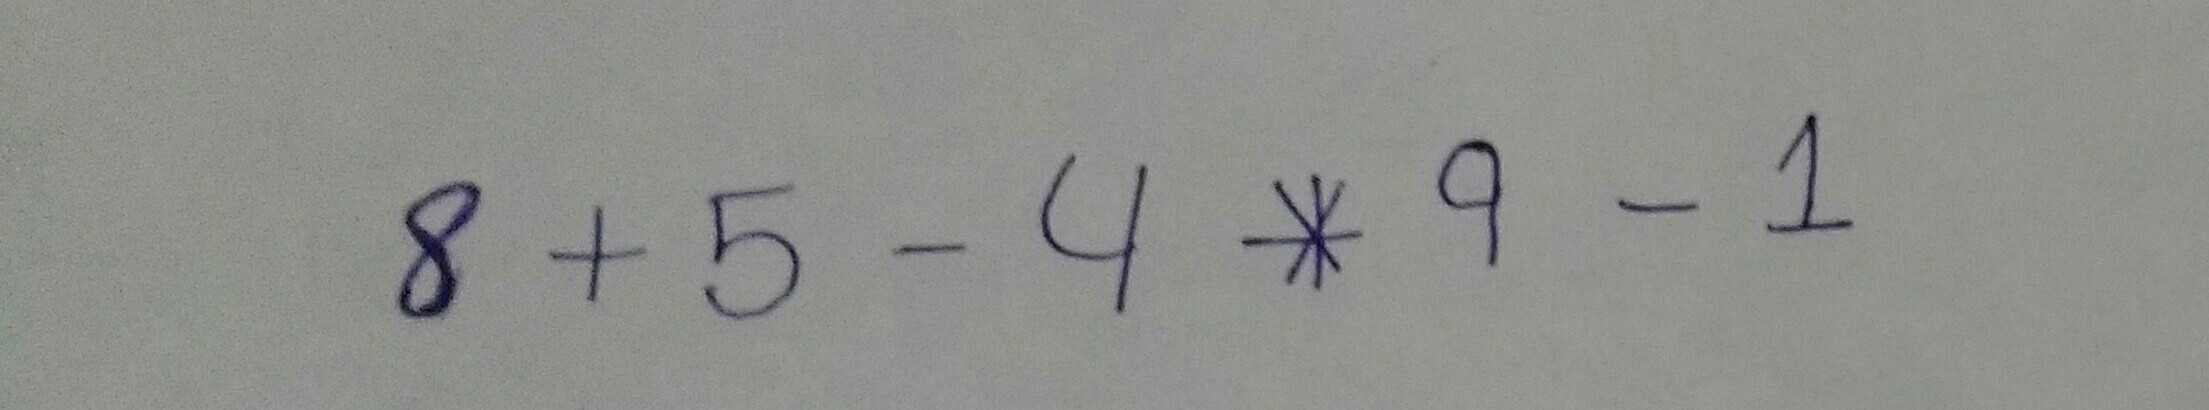 8 + 5 - 4 * 9 - 1